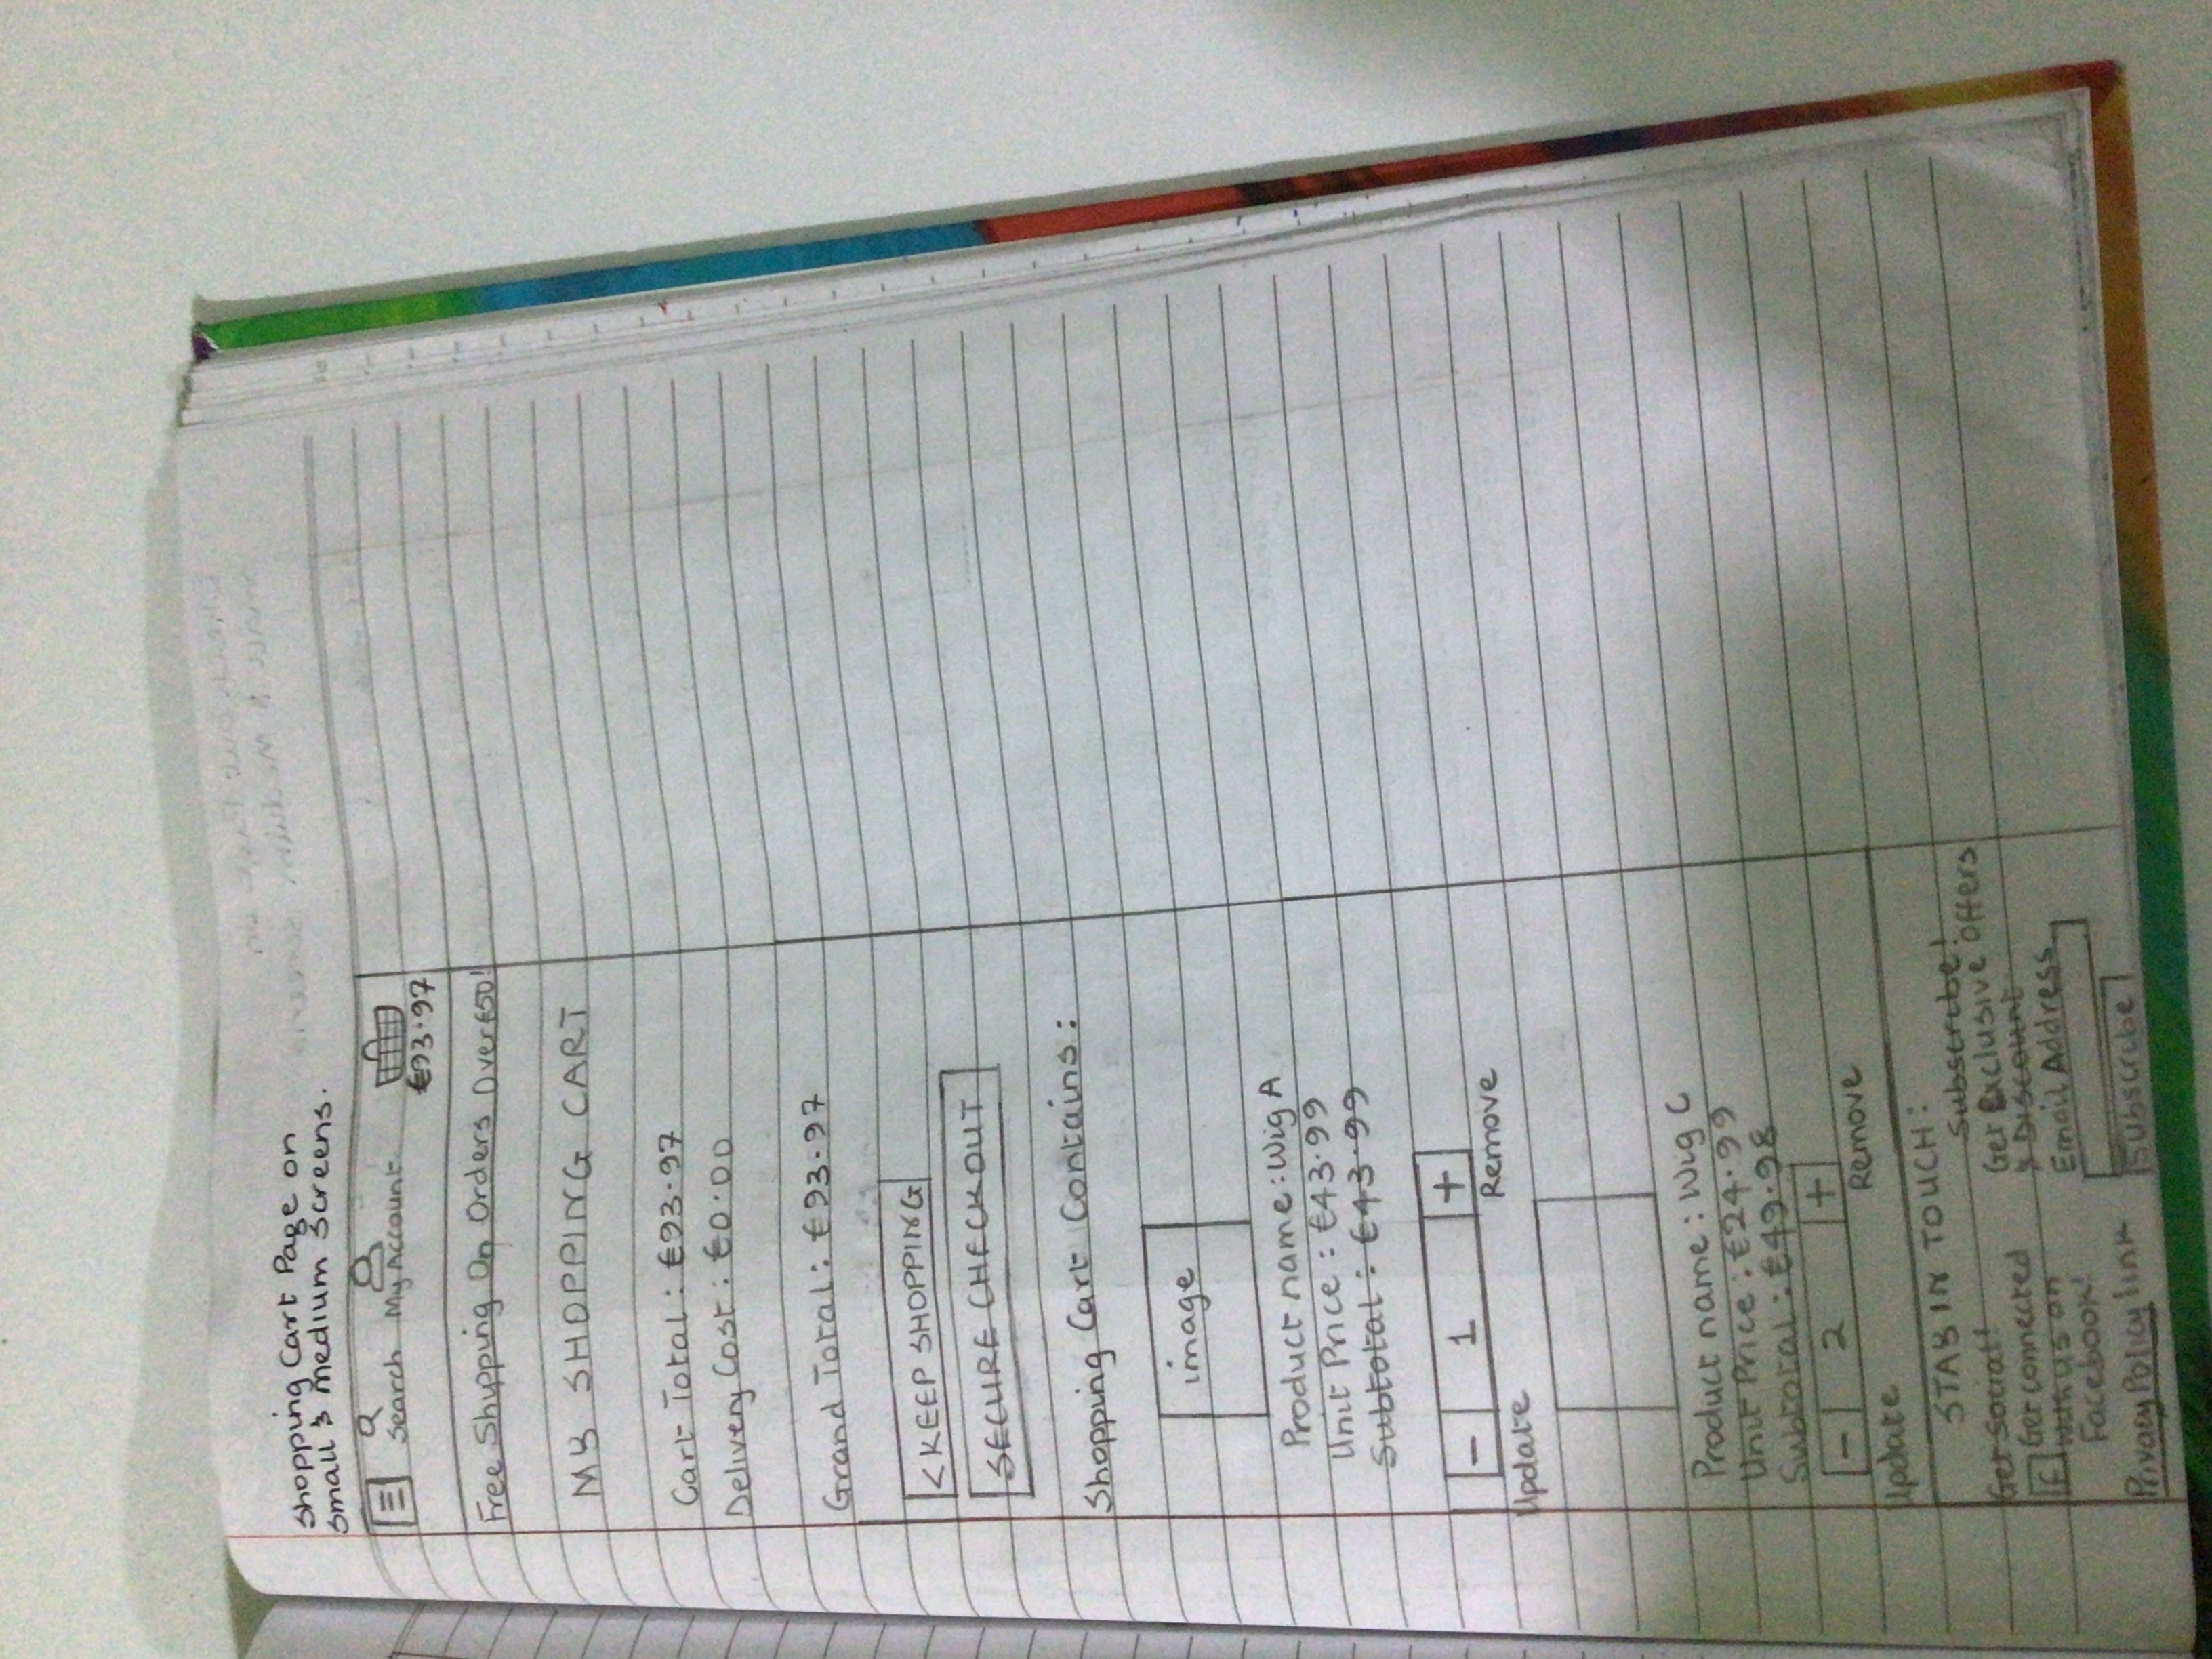 Shopping Cart Page on
small & medium screens.
Search My Account €93.97
Free Shipping On Orders Over €50!
MY SHOPPING CART
Cart Total : €93.97
Delivery Cost : €0.00
Grand Total : €93.97
< KEEP SHOPPING
SECURE CHECKOUT
Shopping Cart Contains :
image
Product name : Wig A
Unit Price : €43.99
Subtotal : €43.99
- 1 +
Update Remove
Product name : Wig C
Unit Price : €24.99
Subtotal : €49.98
- 2 +
Update Remove
STAY IN TOUCH :
Get social!
f Get connected
with us on
Facebook!
Privacy Policy link
Subscribe!
Get Exclusive offers
& Discount
Email Address
Subscribe